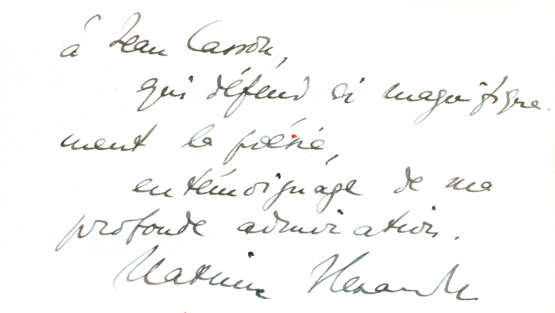 à Jean Cassou,
qui défend si magnifique-
ment la poésie,
en témoignage de ma
profonde admiration.